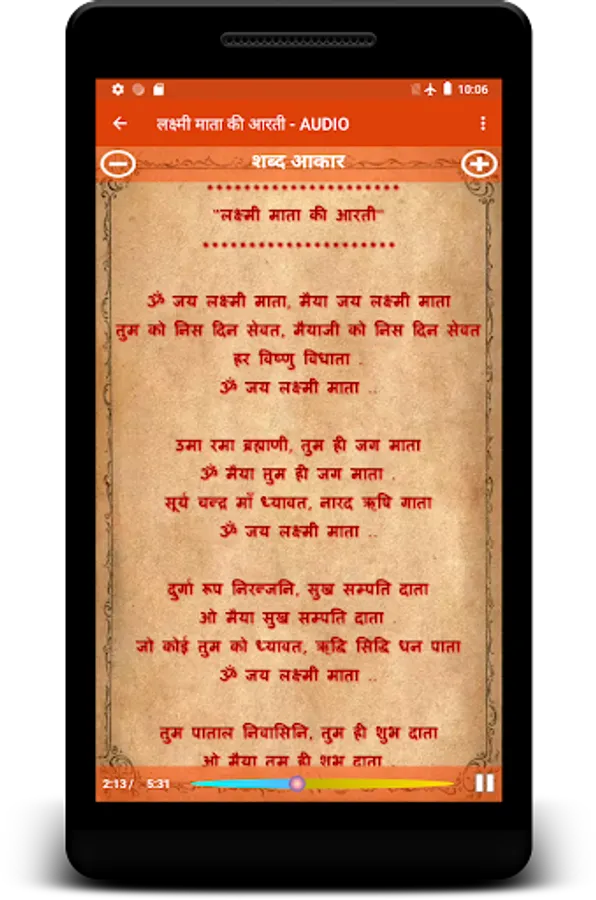 10:06
लक्ष्मी माता की आरती - AUDIO
शब्द आकार
"लक्ष्मी माता की आरती"
ॐ जय लक्ष्मी माता, मैया जय लक्ष्मी माता
तुम को निस दिन सेवत, मैयाजी को निस दिन सेवत
हर विष्णु विधाता .
ॐ जय लक्ष्मी माता ..
उमा रमा ब्रह्माणी, तुम ही जग माता
ॐ मैया तुम ही जग माता .
सूर्य चन्द्र माँ ध्यावत, नारद ऋषि गाता
ॐ जय लक्ष्मी माता ..
दुर्गा रूप निरन्जनि, सुख सम्पति दाता
ओ मैया सुख सम्पति दाता .
जो कोई तुम को ध्यावत, ऋद्धि सिद्धि धन पाता
ॐ जय लक्ष्मी माता ..
तुम पाताल निवासिनि, तुम ही शुभ दाता
ओ मैया तुम ही शुभ दाता .
2:13 / 5:31